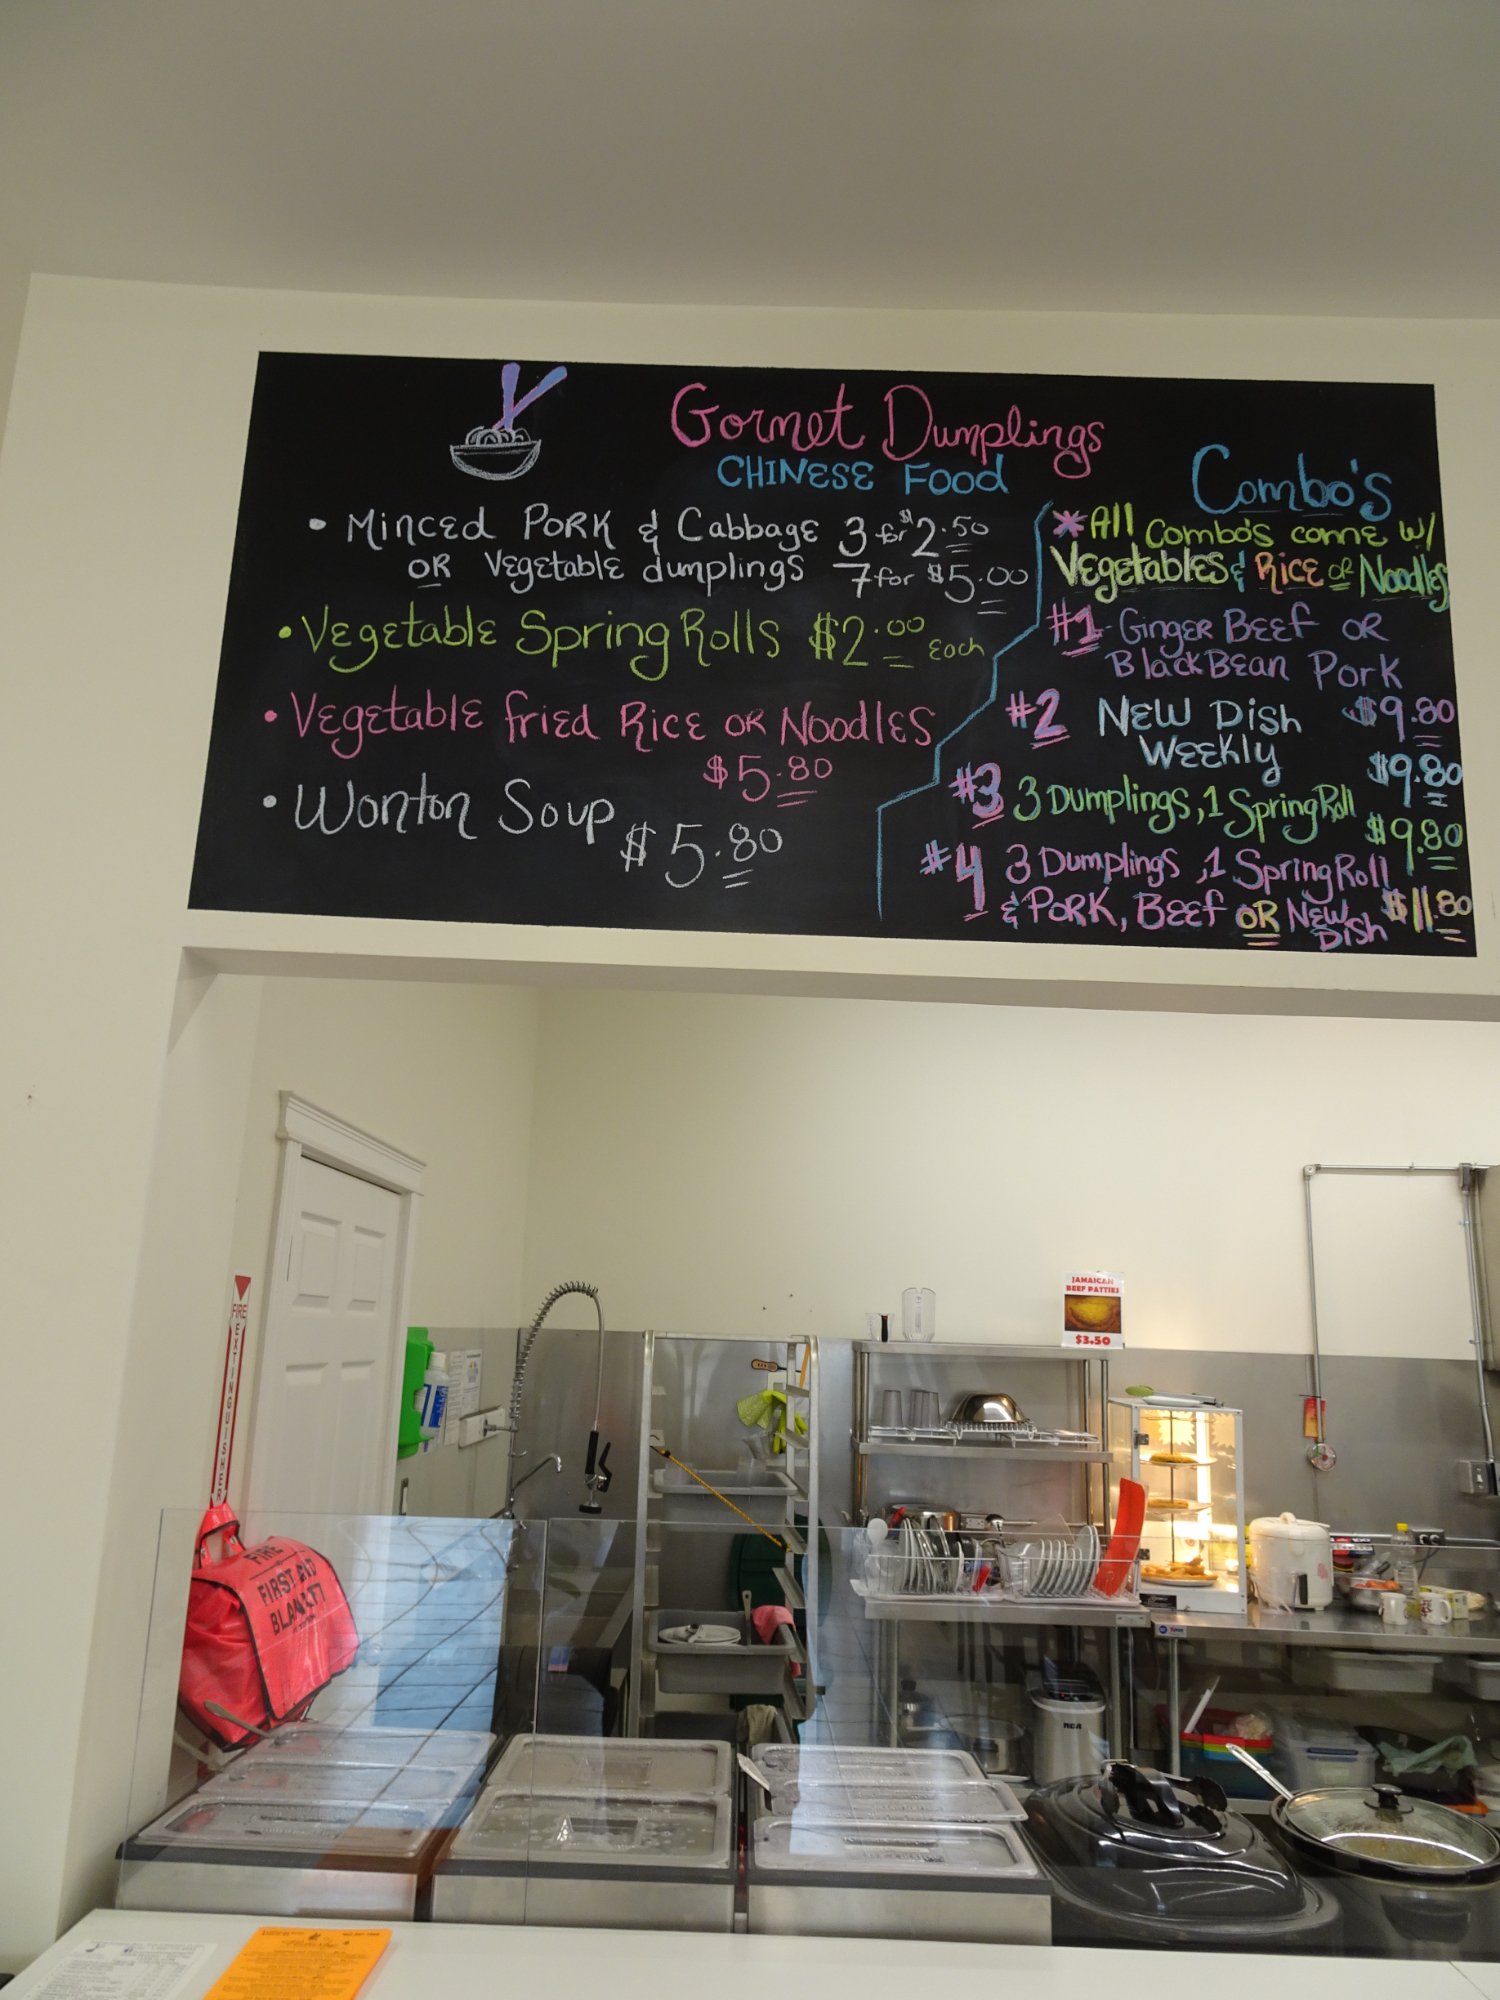 Gormet Dumplings
CHINESE FOOD
• Minced PORK & Cabbage 3 for $2.50
OR Vegetable dumplings 7 for $5.00
• Vegetable Spring Rolls $2.00 Each
• Vegetable fried Rice OR Noodles
$5.80
• Wonton Soup
$5.80
Combo's
*All Combo's come w/
Vegetables & Rice or Noodles
#1 - Ginger Beef OR
Black Bean Pork
$9.80
#2 New Dish
Weekly
$9.80
#3 3 Dumplings, 1 Spring Roll
$9.80
#4 3 Dumplings, 1 Spring Roll
& PORK, Beef OR New
Dish
$11.80
JAMAICAN
BEEF PATTIES
$3.50
FIRE EXTINGUISHER
FIRE
FIRST AID
BLANKET
RCA